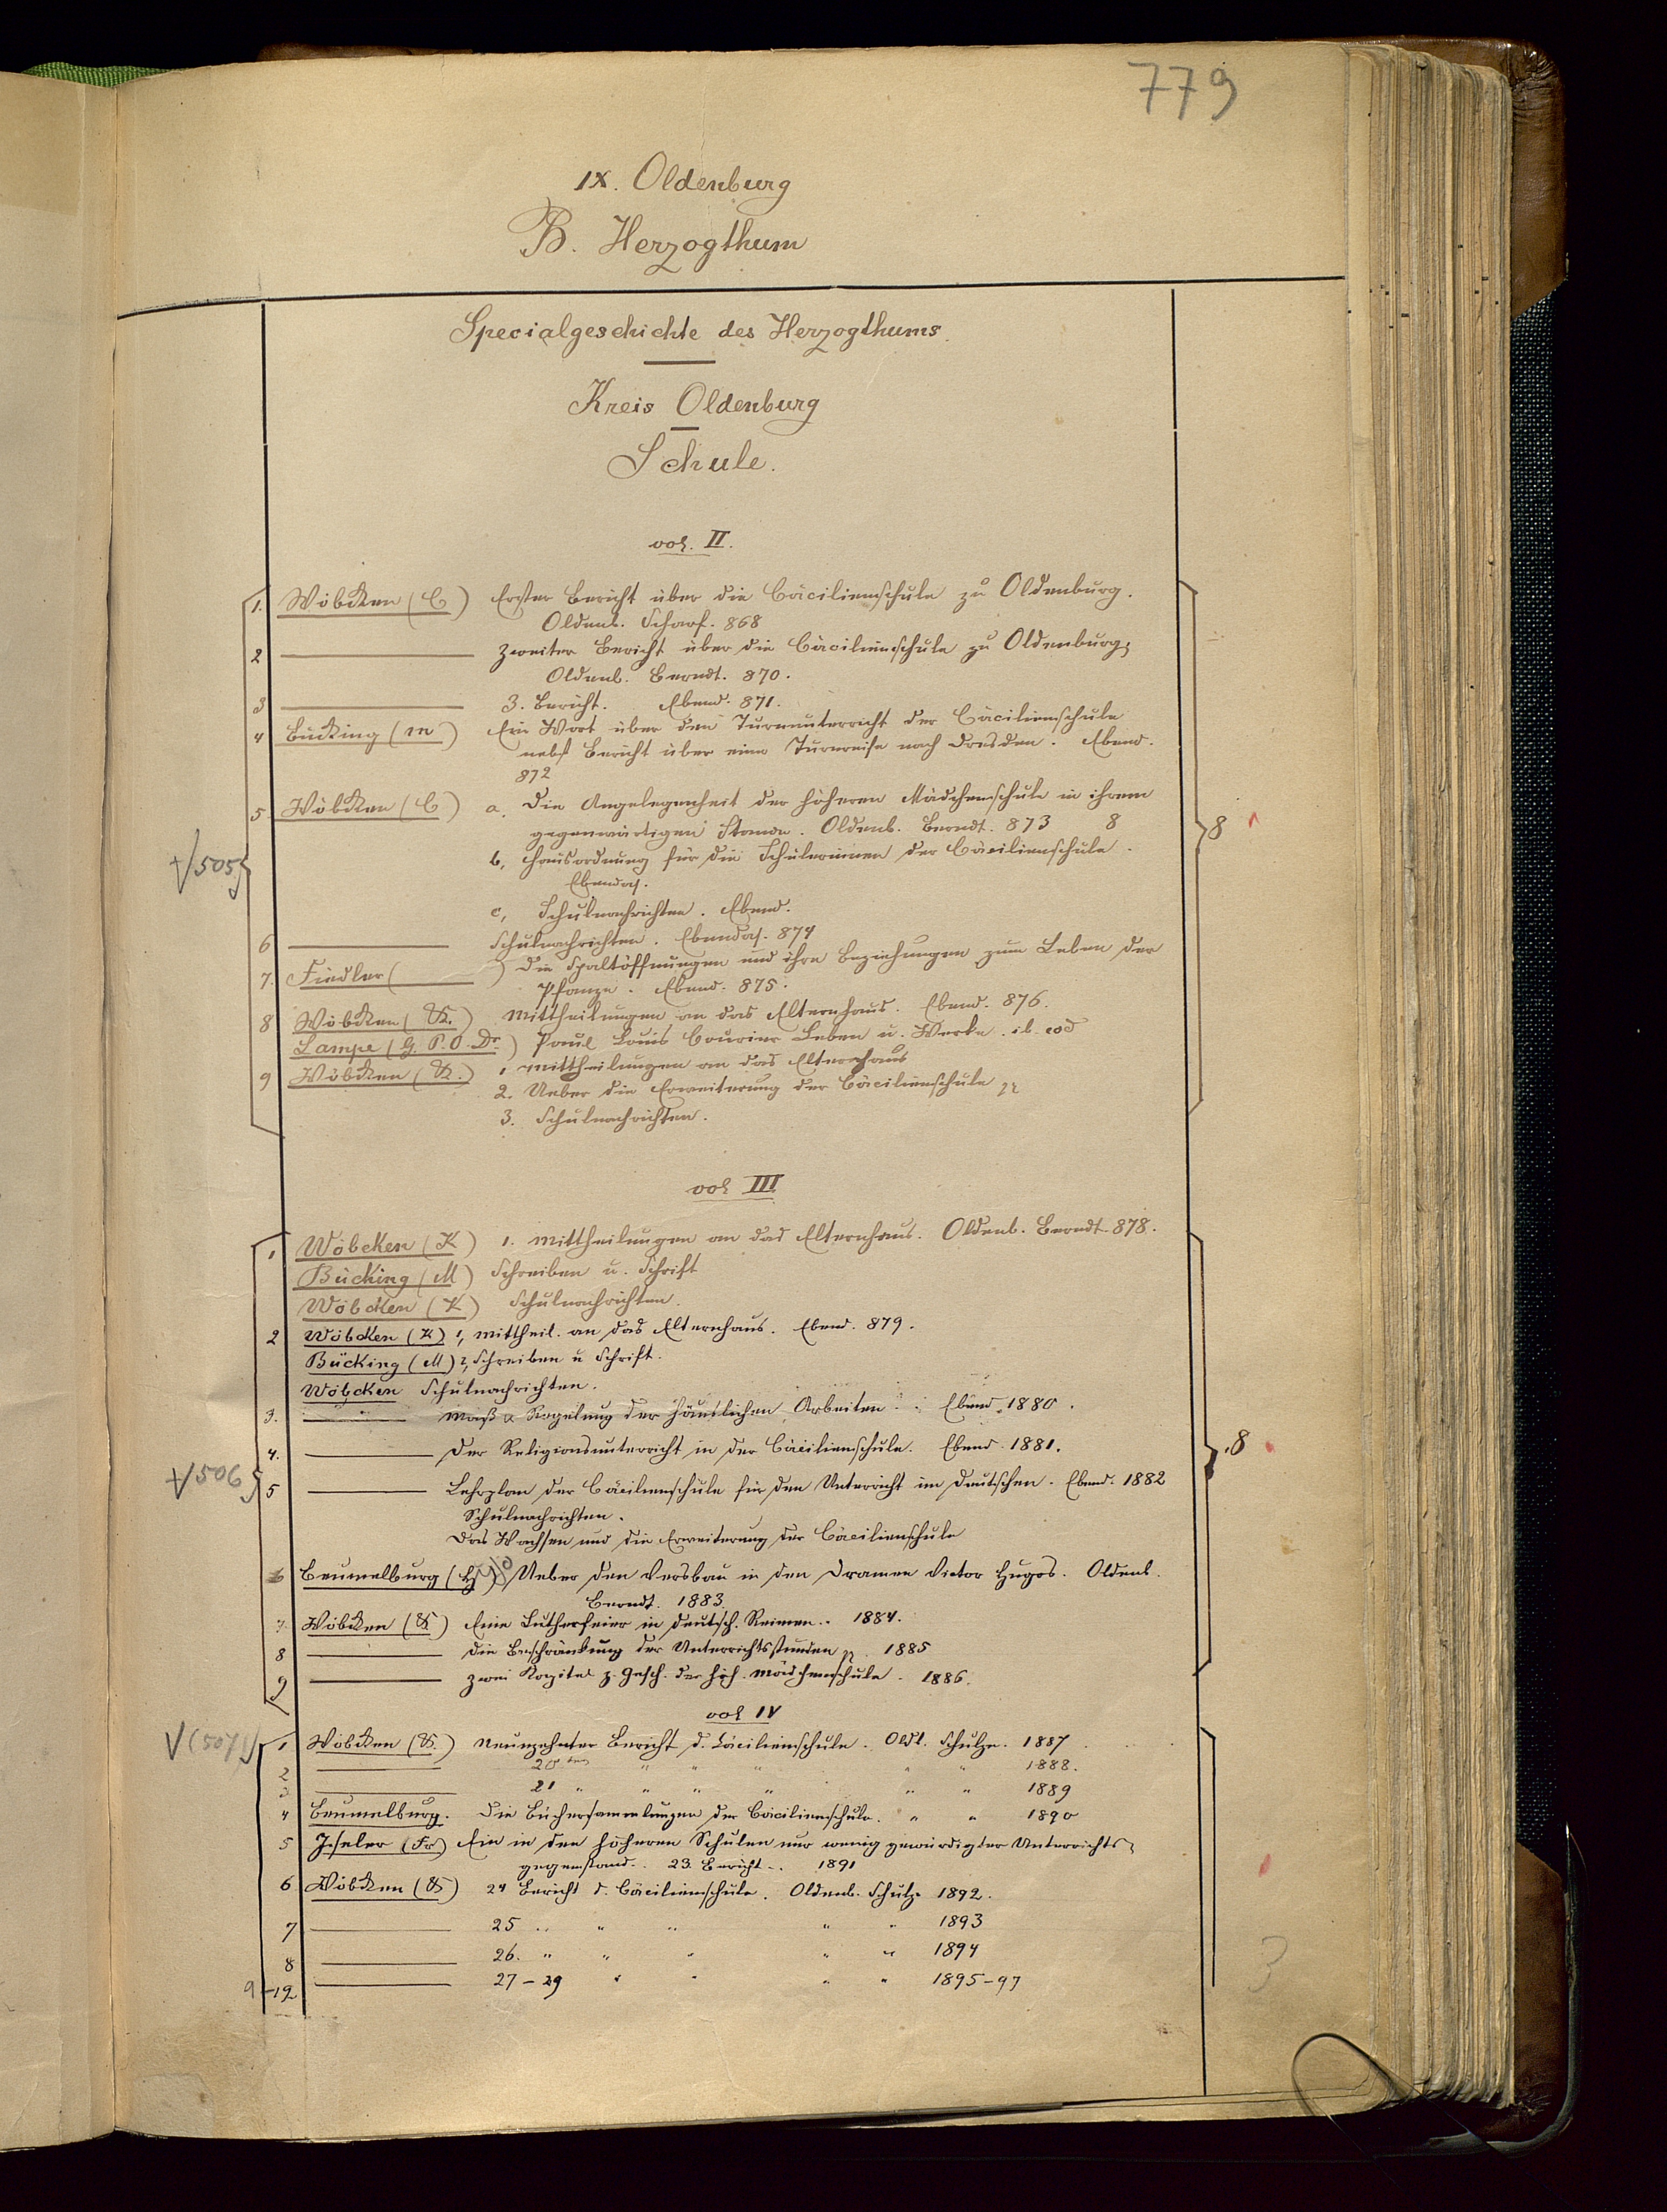 779
IX. Oldenburg
B. Herzogthum
Specialgeschichte des Herzogthums.
Kreis Oldenburg
Schule.
vol. II.
1. Wöbcken (C) Erster Bericht über die Cäcilienschule zu Oldenburg.
Oldenb. Scharf. 868
2 Zweiter Bericht über die Cäcilienschule zu Oldenburg,
Oldenb. Berndt. 870.
3 3. Bericht. Ebend. 871.
4 Bücking (M) Ein Wort über den Turnunterricht der Cäcilienschule
nebst Bericht über eine Turnreise nach Dresden. Ebend.
872
5 Wöbcken (C) a. Die Angelegenheit der höheren Mädchenschule in ihrem
gegenwärtigen Stande. Oldenb. Berndt. 873 8
8
b, Hausordnung für die Schülerinnen der Cäcilienschule.
√505
Ebendas.
c, Schulnachrichten. Ebend.
6 Schulnachrichten. Ebendas. 874
7. Fiedler ( ) Die Spaltöffnungen und ihre Beziehungen zum Leben der
Pflanze. Ebend. 875.
8 Wöbcken (K.) Mittheilungen an das Elternhaus. Ebend. 876.
Lampe (G. P. O. Dr.) Paul Louis Courier Leben u. Werke. ib. eod
9 Wöbcken (K.) 1 Mittheilungen an das Elternhaus
2. Ueber die Erweiterung der Cäcilienschule
3. Schulnachrichten.
vol III
1 Wöbcken (K) 1. Mittheilungen an das Elternhaus. Oldenb. Berndt. 878.
Bücking (M) Schreiben u. Schrift
Wöbcken (K) Schulnachrichten.
2 Wöbcken (K) 1, Mittheil. an das Elternhaus. Ebend. 879.
Bücking (M) 2, Schreiben u Schrift.
Wöbcken Schulnachrichten.
3. Maß u Regelung der häuslichen Arbeiten. Ebend. 1880.
4. Der Religionsunterricht in der Cäcilienschule. Ebend. 1881.
8
√506
5 Lehrplan der Cäcilienschule für den Unterricht im Deutschen. Ebend. 1882
Schulnachrichten.
Das Wachsen und die Erweiterung der Cäcilienschule
6 Beumelburg (H) Ueber den Versbau in den Dramen Victor Hugos. Oldenb.
Berndt. 1883.
7. Wöbcken (K) Eine Lutherfeier in deutsch. Reimen. 1884.
8 Die Beschränkung der Unterrichtsstunden 1885
9 Zwei Kapitel z. Gesch. der höh. Mädchenschule. 1886.
vol IV
√(507)
1 Wöbcken (K.) Neunzehnter Bericht d. Cäcilienschule. Old. Schulze. 1887
2 20ter " " " " " 1888.
3 21 " " " " " " 1889
4 Beumelburg. Die Büchersammlungen der Cäcilienschule. " " 1890
5 Iseler (Fr) Ein in den höheren Schulen nur wenig gewürdigter Unterrichts-
gegenstand. 23. Bericht. 1891
6 Wöbcken (K) 24 Bericht d. Cäcilienschule. Oldenb. Schulze 1892.
7 25 " " " " " 1893
8 26. " " " " " 1894
3
9-12 27-29 " " " " 1895-97